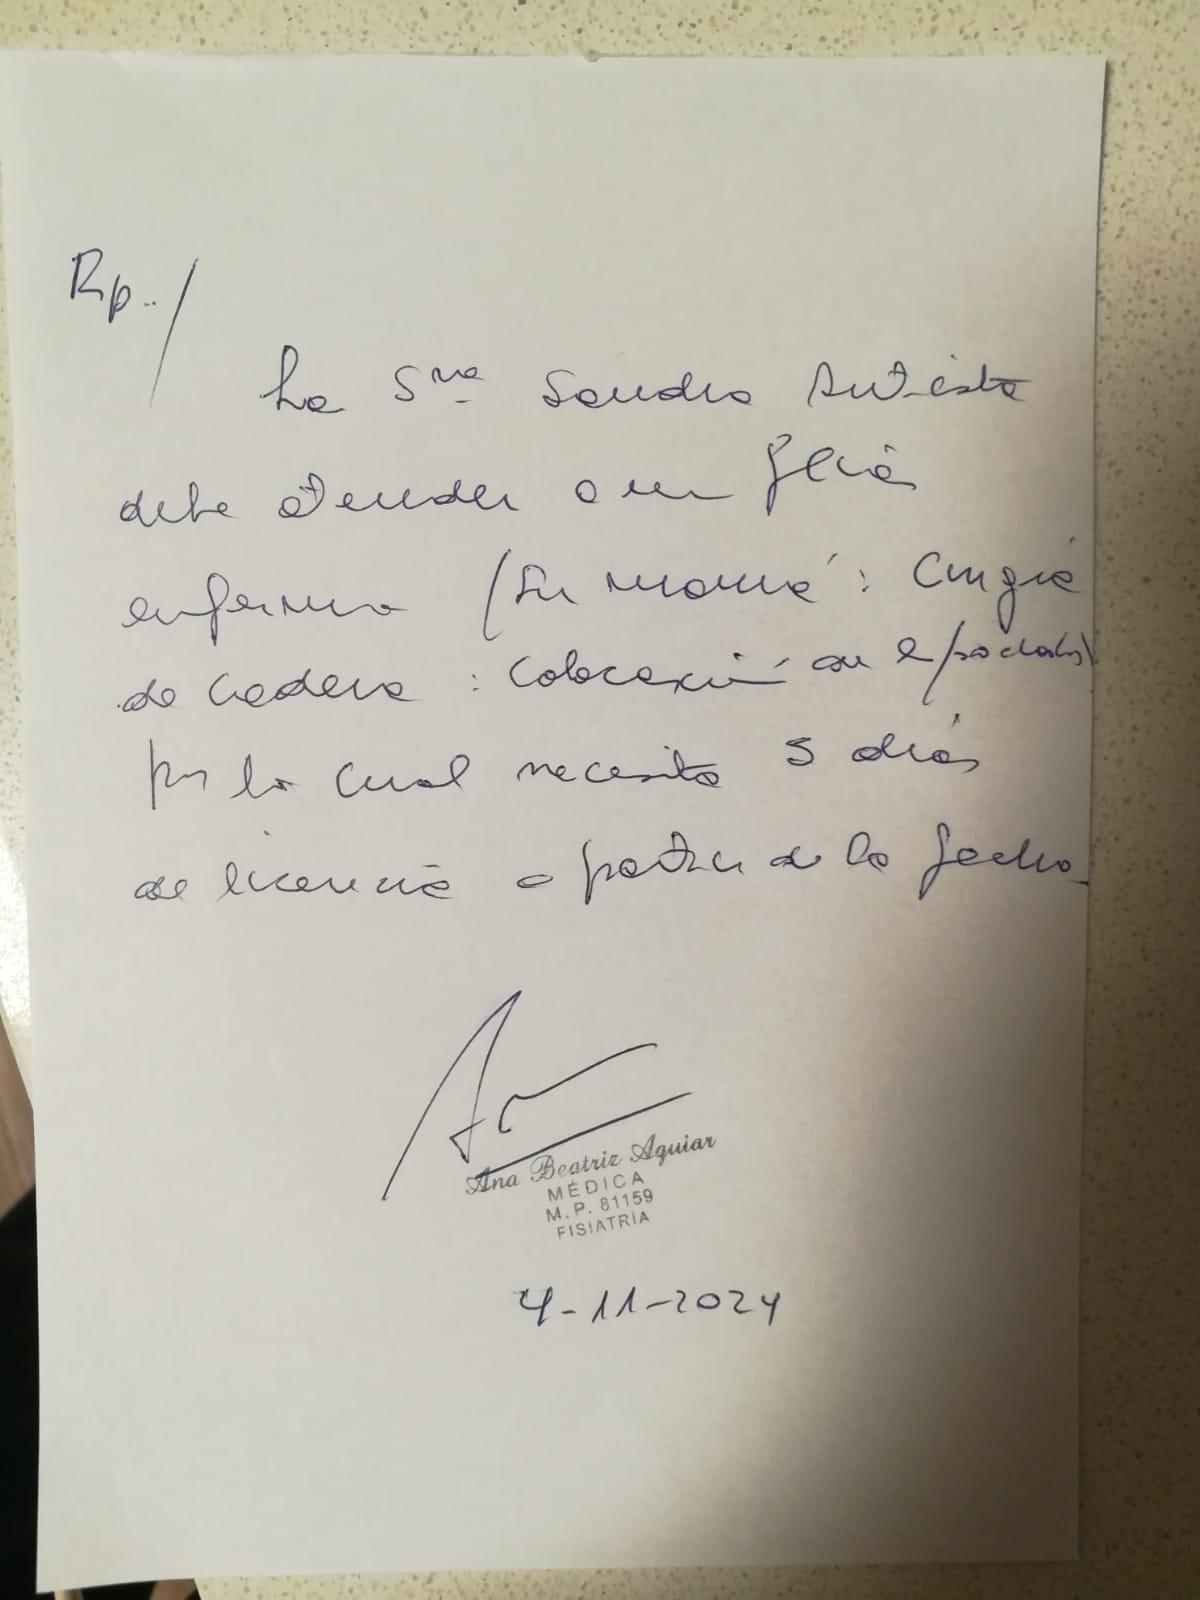 Rp../
La Sra Sandra
debe atender a un flia
enferma (su mamá: Cirugia
de cadera: colocación
por lo cual necesita 5 días
de licencia a partir de la fecha
Ana Beatriz Aguiar
MÉDICA
M.P. 81159
FISIATRÍA
4-11-2024